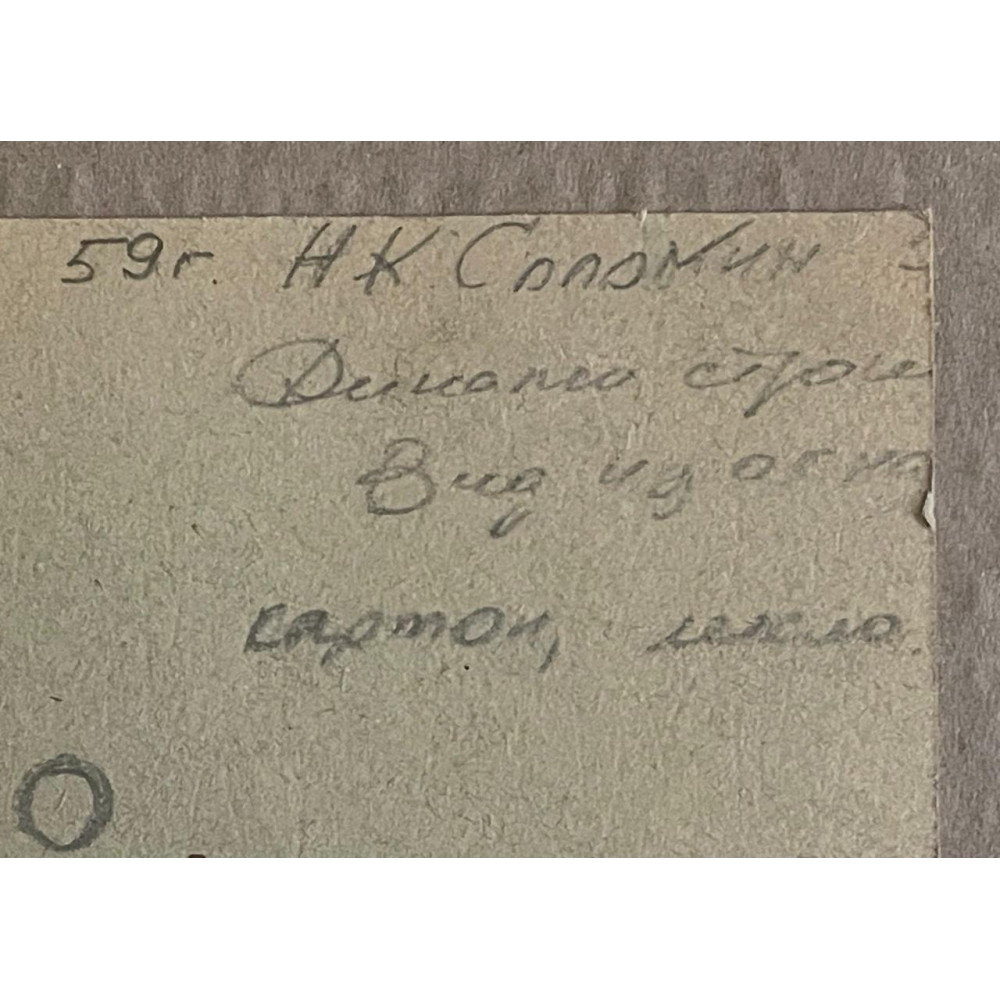 59г. НК Соломин
строи
Вид из окна
картон, масло.
О